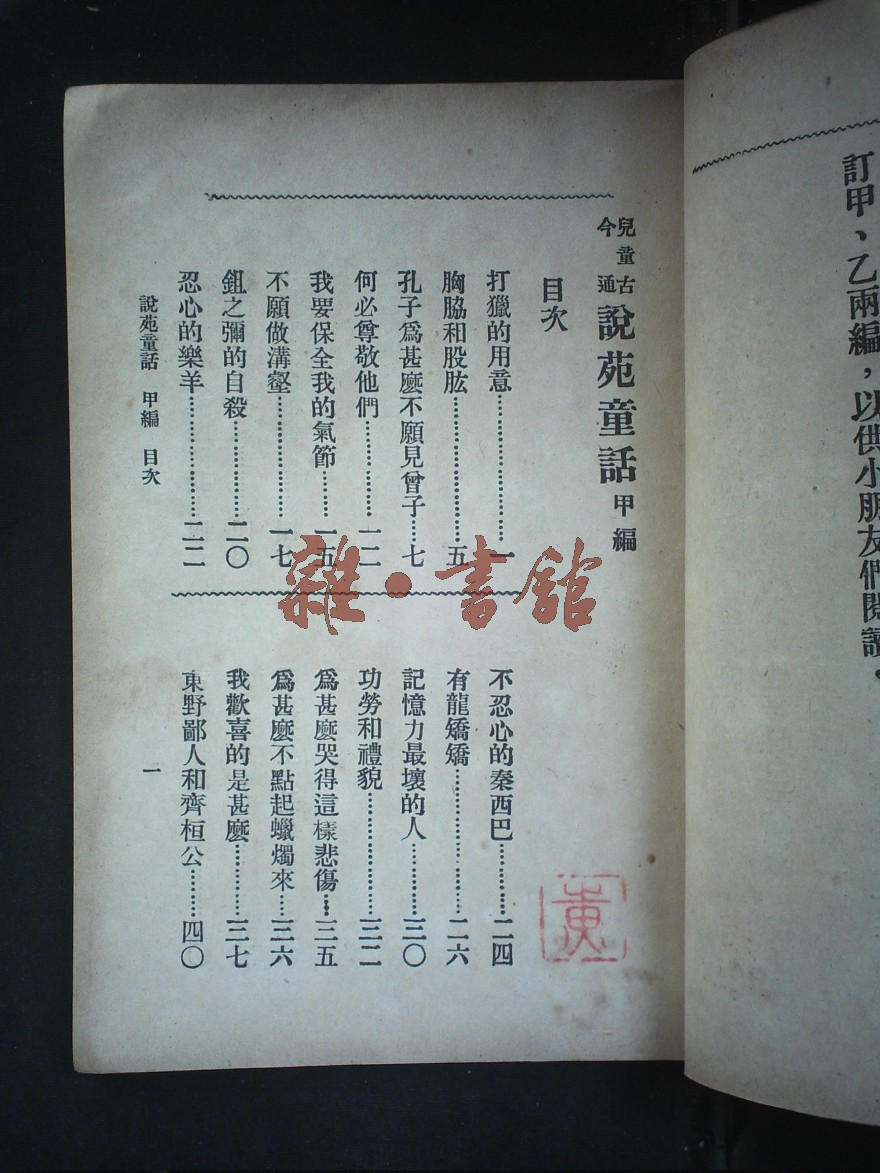 訂甲、乙兩編，以供小朋友們閱讀。
兒童古今通
說苑童話 甲編
目次
打獵的用意⋯⋯⋯⋯一
胸脇和股肱⋯⋯⋯⋯五
孔子爲甚麼不願見曾子⋯⋯七
何必尊敬他們⋯⋯⋯一二
我要保全我的氣節⋯⋯一五
不願做溝壑⋯⋯⋯⋯一七
鉏之彌的自殺⋯⋯⋯二〇
忍心的樂羊⋯⋯⋯⋯二二
不忍心的秦西巴⋯⋯⋯二四
有龍矯矯⋯⋯⋯⋯二六
記憶力最壞的人⋯⋯⋯三〇
功勞和禮貌⋯⋯⋯⋯三二
爲甚麼哭得這樣悲傷⋯三五
爲甚麼不點起蠟燭來⋯三六
我歡喜的是甚麼⋯⋯⋯三七
東野鄙人和齊桓公⋯⋯四〇
說苑童話 甲編 目次
一
黄
雜·書館